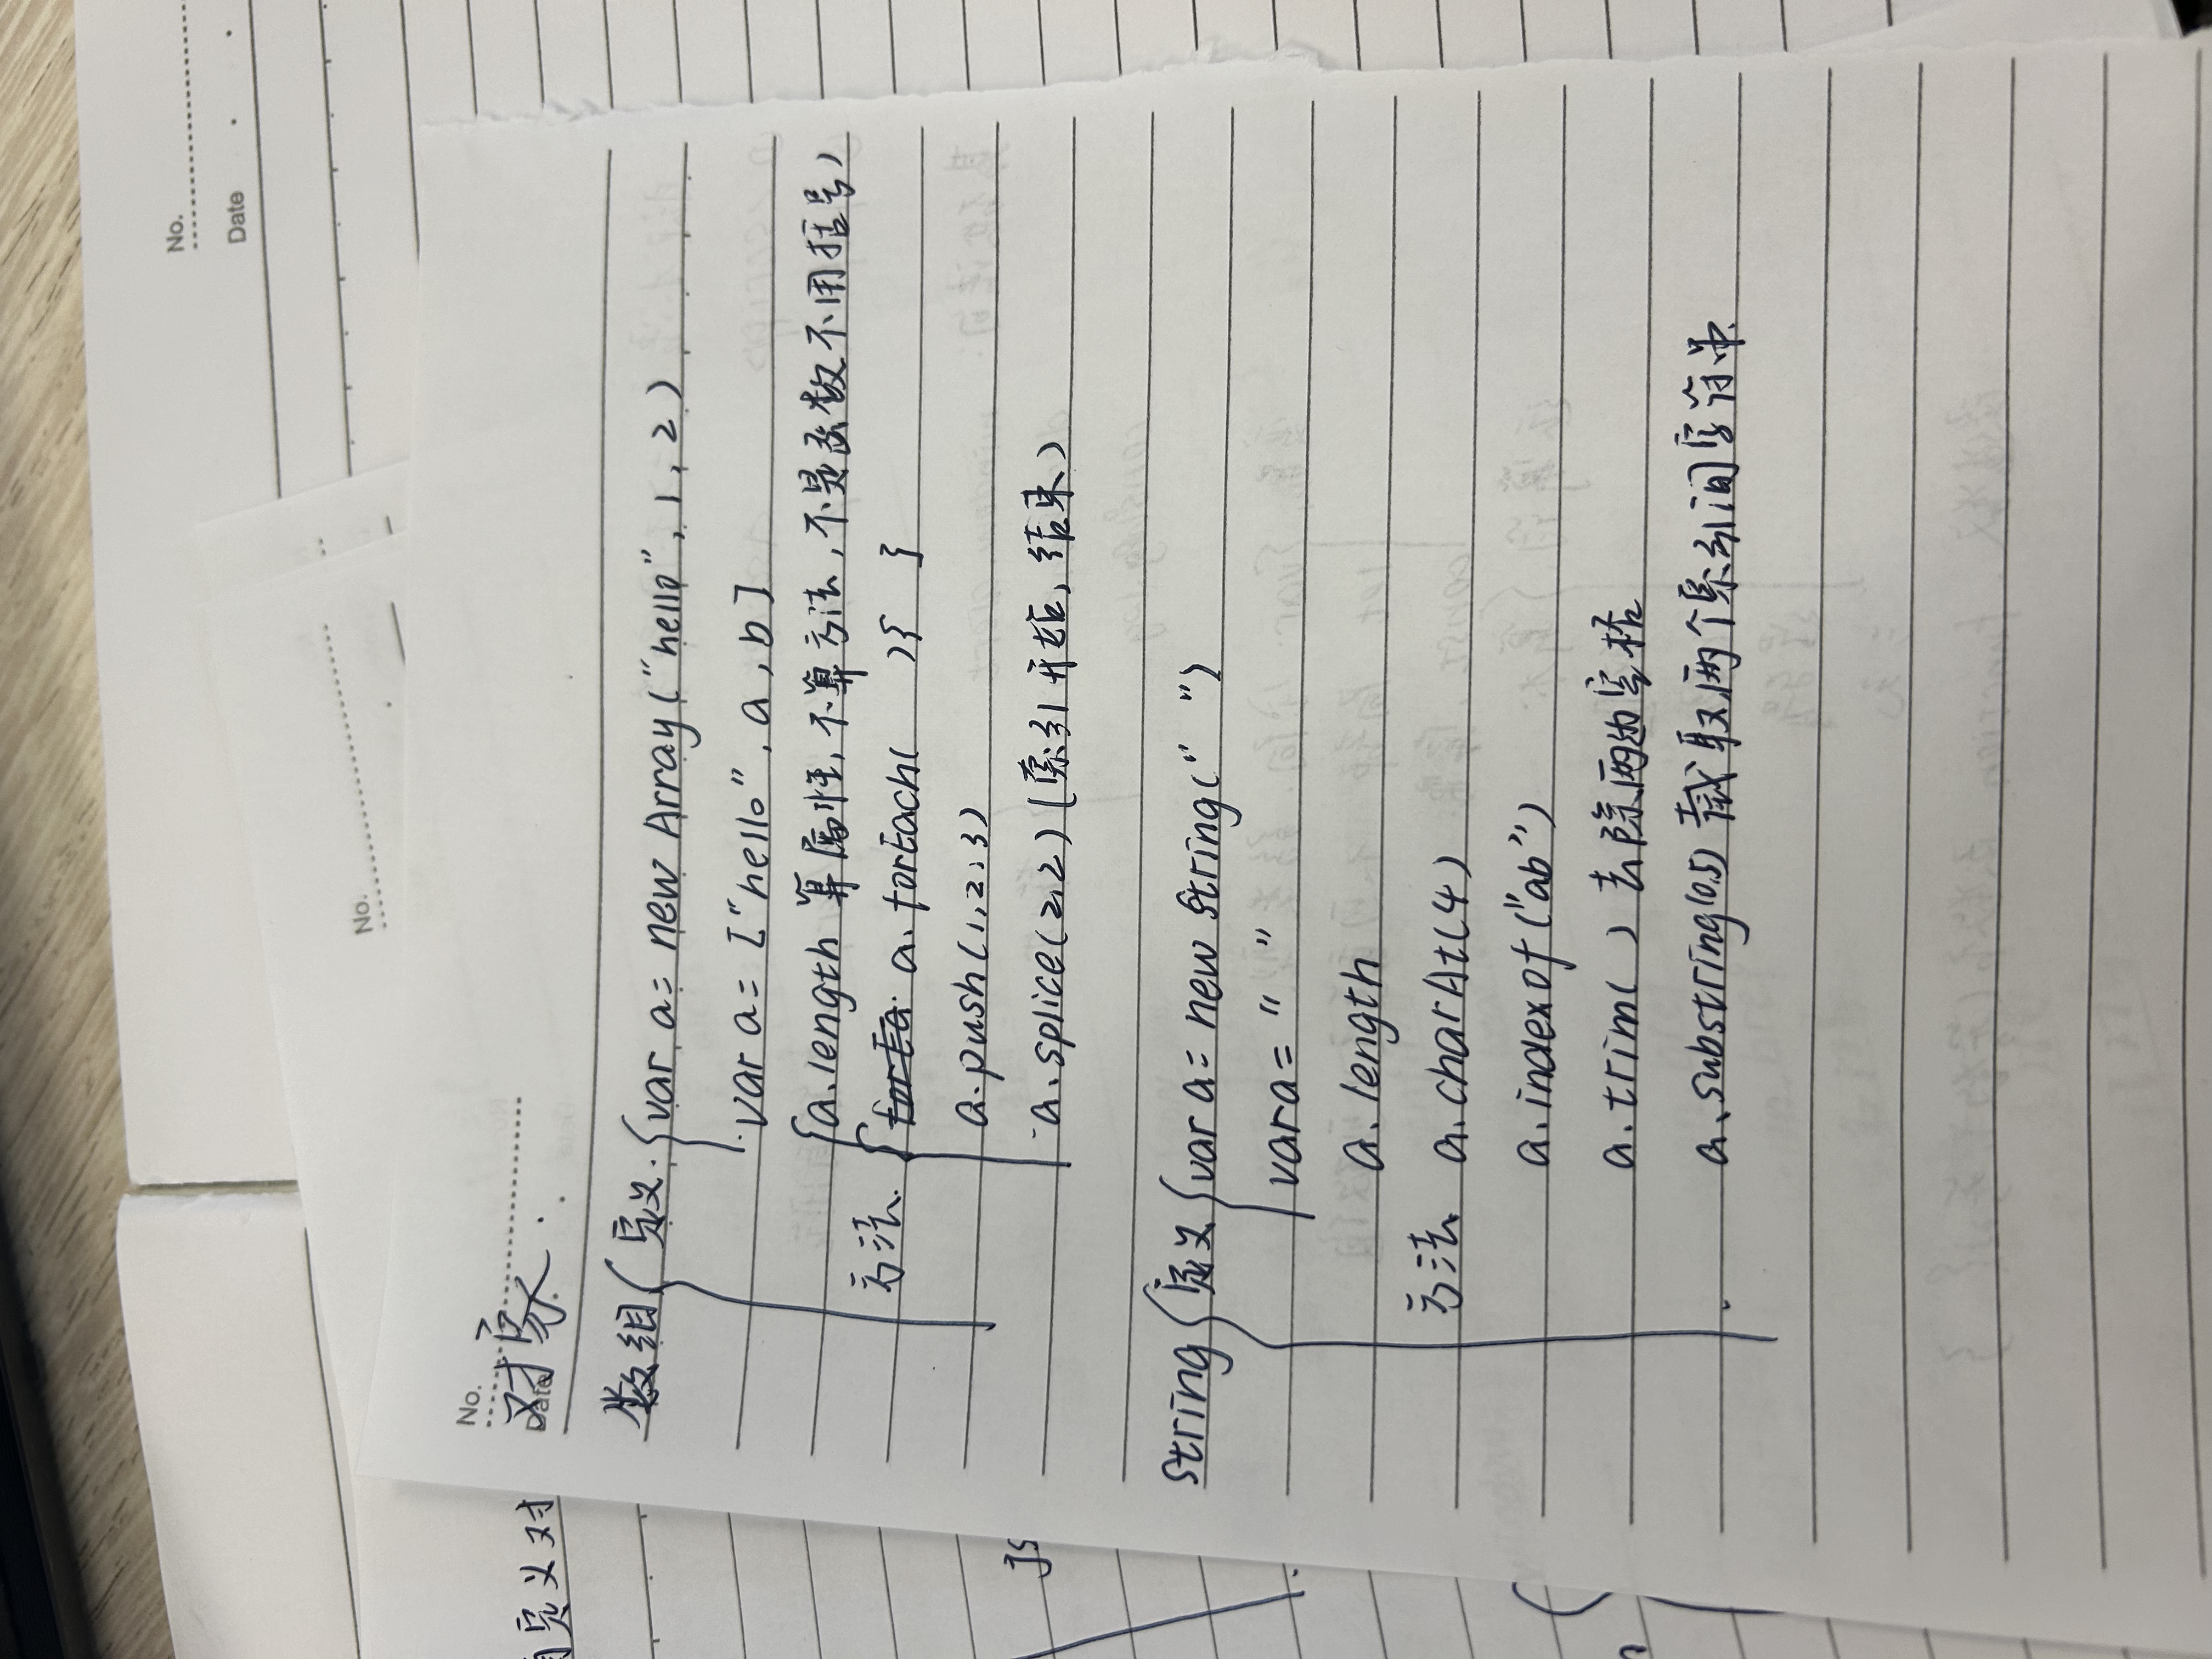 No.
Date
No.
No.
Date
对象
自定义对
数组 { 定义. { var a = new Array("hello", 1, 2)
var a = ["hello", a, b]
a.length 算属性, 不算方法, 不是函数不用括号)
方法. a.forEach( ){ }
a.push(1,2,3)
a.splice(2,2) (索引开始, 结束)
JS
string { 定义 { var a = new String(" ")
var a = " "
a.length
方法 a.charAt(4)
a.indexOf("ab")
a.trim( ) 去除两边空格
a.substring(0,5) 截取两个索引间字符串